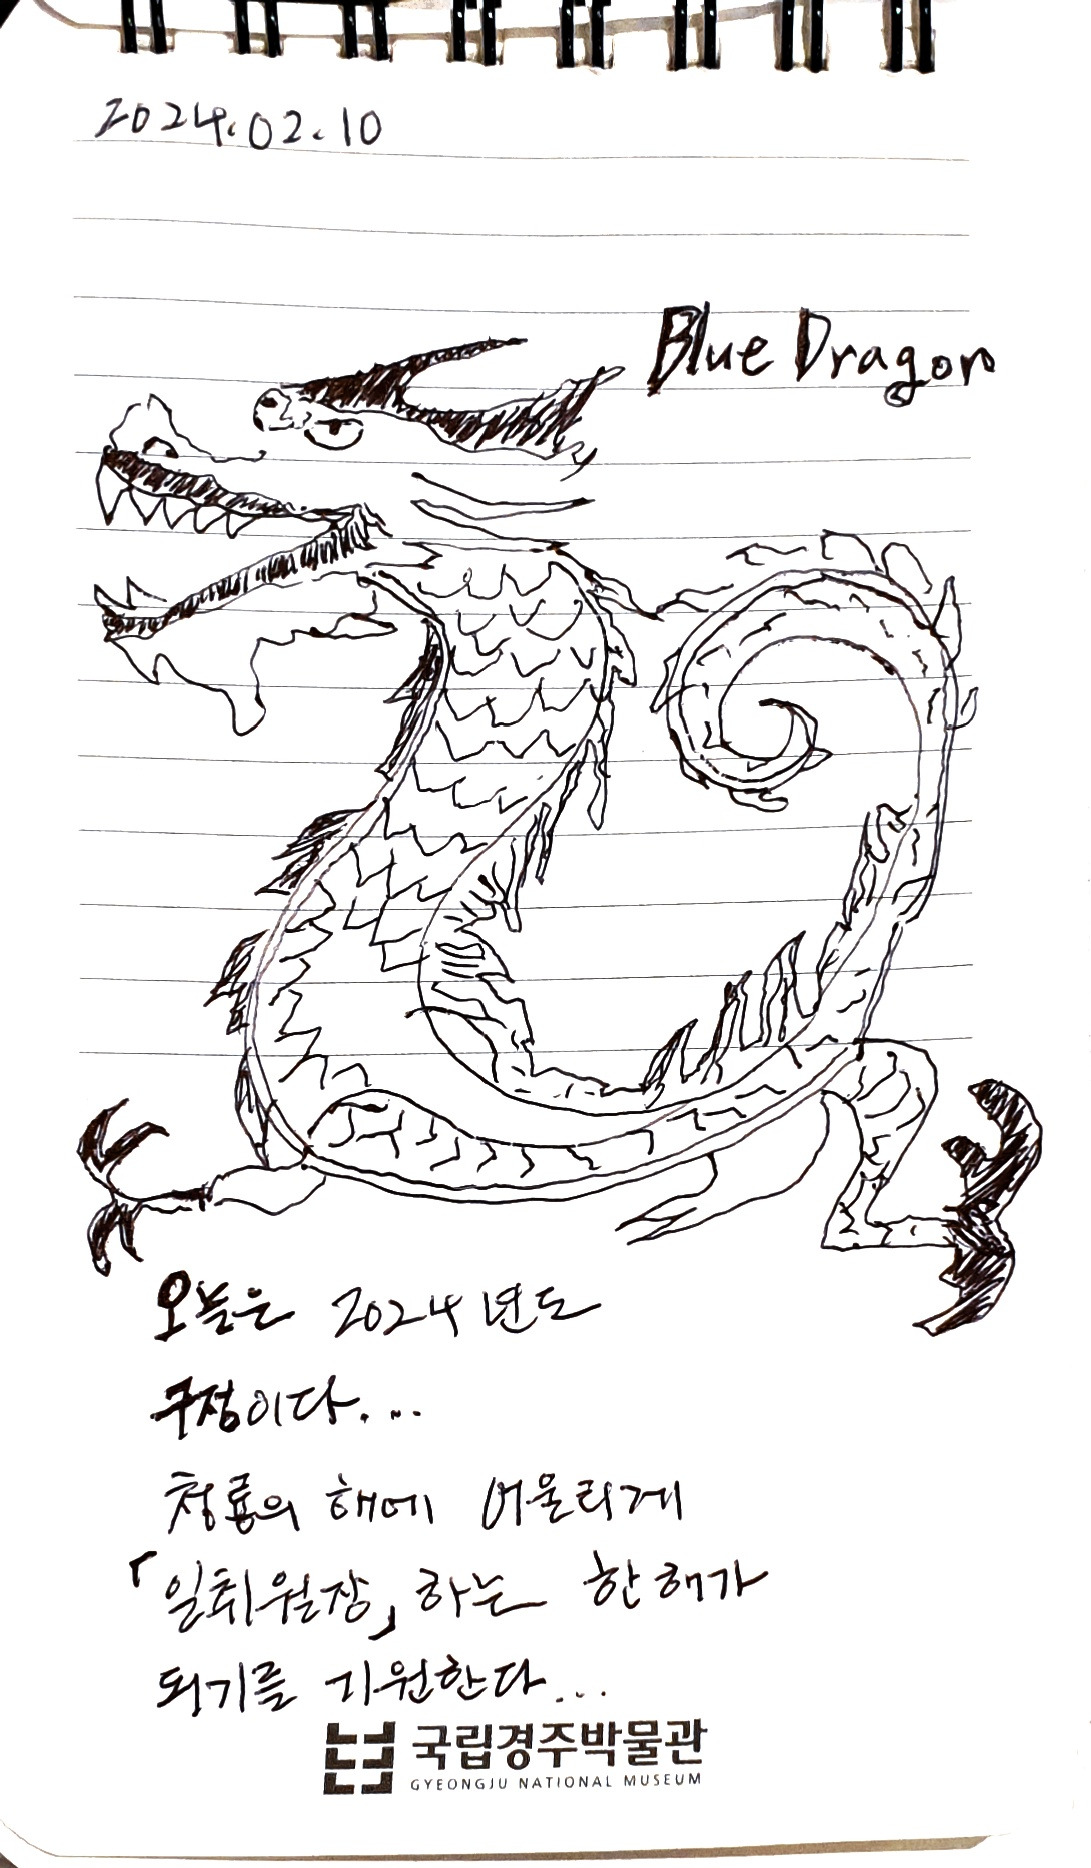 2024.02.10
Blue Dragon
오늘은 2024년도
구정이다...
청룡의 해에 어울리게
「일취월장」하는 한해가
되기를 기원한다...
국립경주박물관
GYEONGJU NATIONAL MUSEUM